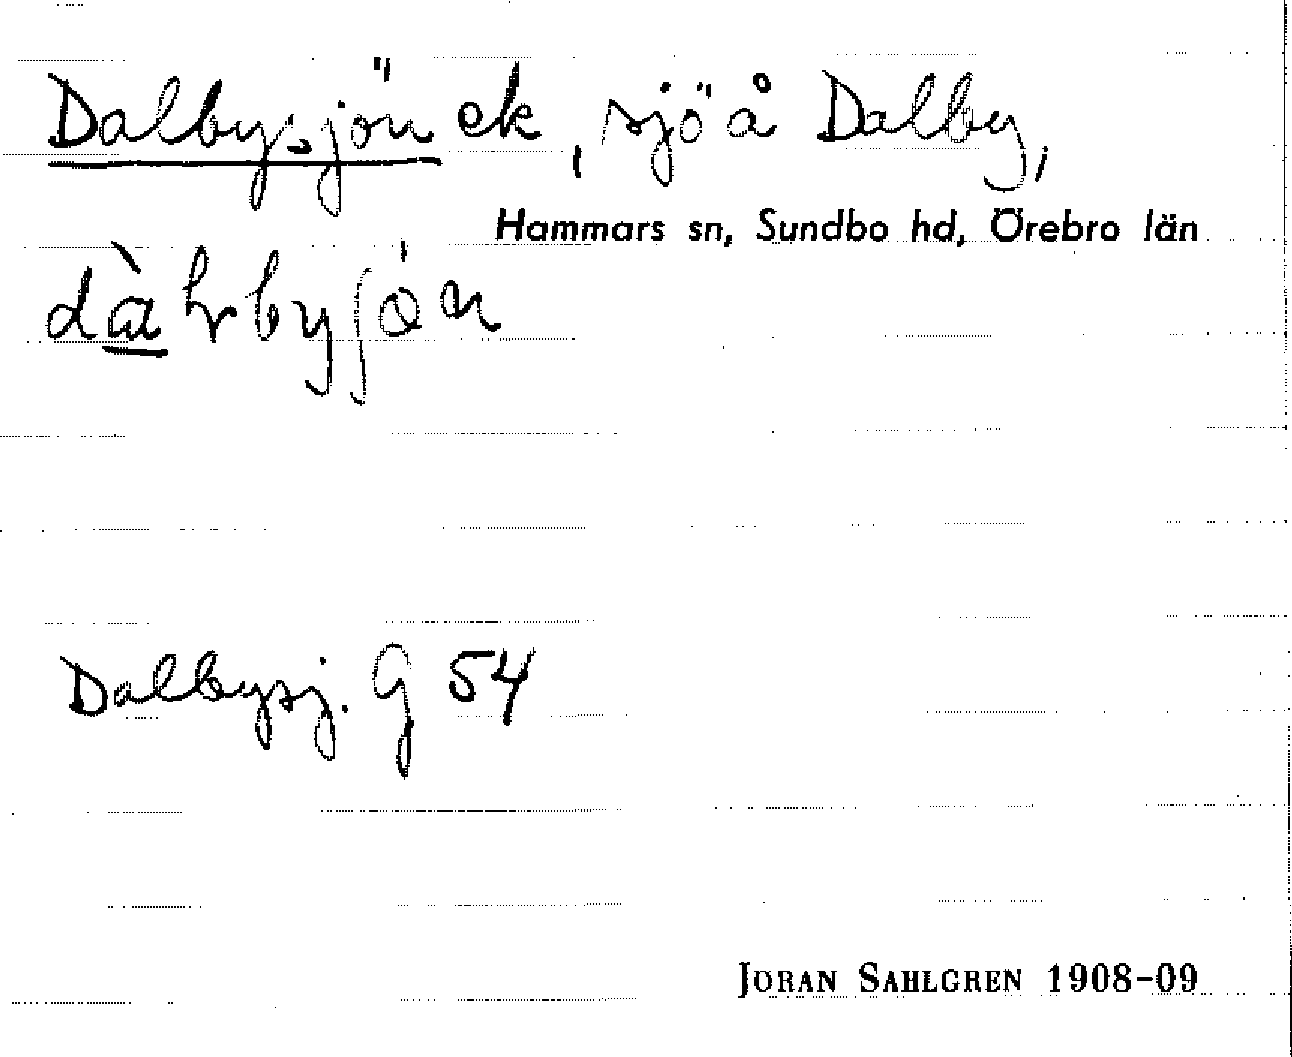 Dalbysjön ek, sjö å Dalby,
Hammars sn, Sundbo hd, Örebro län
Dalbysj. G 54
JÖRAN SAHLGREN 1908-09